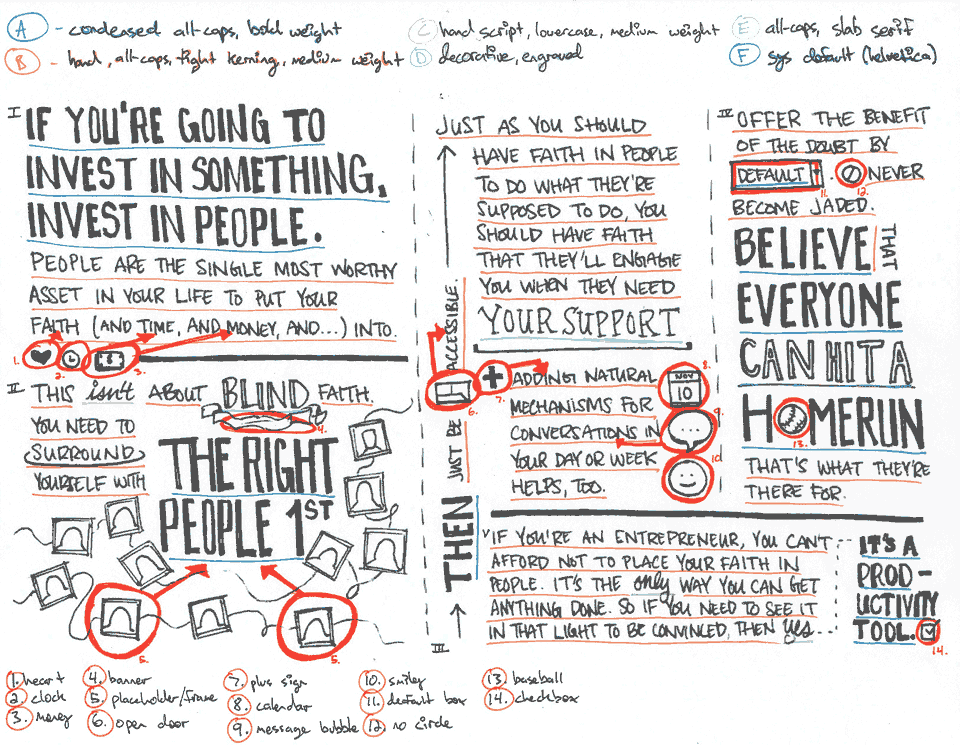 A - condensed all-caps, bold weight
B - hand, all-caps, tight kerning, medium weight
C hand script, lowercase, medium weight
D decorative, engraved
E all-caps, slab serif
F sys default (helvetica)
I IF YOU'RE GOING TO
INVEST IN SOMETHING,
INVEST IN PEOPLE.
PEOPLE ARE THE SINGLE MOST WORTHY
ASSET IN YOUR LIFE TO PUT YOUR
FAITH (AND TIME, AND MONEY, AND...) INTO.
1. 2. 3.
II THIS isn't ABOUT BLIND FAITH.
4.
YOU NEED TO
SURROUND
YOURSELF WITH
THE RIGHT
PEOPLE 1ST
5. 5.
III THEN JUST BE ACCESSIBLE.
6.
JUST AS YOU SHOULD
HAVE FAITH IN PEOPLE
TO DO WHAT THEY'RE
SUPPOSED TO DO, YOU
SHOULD HAVE FAITH
THAT THEY'LL ENGAGE
YOU WHEN THEY NEED
YOUR SUPPORT
7. ADDING NATURAL
MECHANISMS FOR
CONVERSATIONS IN
YOUR DAY OR WEEK
HELPS, TOO.
8. NOV
10
9.
10
IV OFFER THE BENEFIT
OF THE DOUBT BY
DEFAULT. NEVER
11. 12.
BECOME JADED.
BELIEVE THAT
EVERYONE
CAN HIT A
HOMERUN
13.
THAT'S WHAT THEY'RE
THERE FOR.
V IF YOU'RE AN ENTREPRENEUR, YOU CAN'T
AFFORD NOT TO PLACE YOUR FAITH IN
PEOPLE. IT'S THE only WAY YOU CAN GET
ANYTHING DONE. SO IF YOU NEED TO SEE IT
IN THAT LIGHT TO BE CONVINCED, THEN yes...
IT'S A
PROD-
UCTIVITY
TOOL.
14.
1. heart
2. clock
3. money
4. banner
5. placeholder/frame
6. open door
7. plus sign
8. calendar
9. message bubble
10. smiley
11. default box
12. no circle
13. baseball
14. checkbox